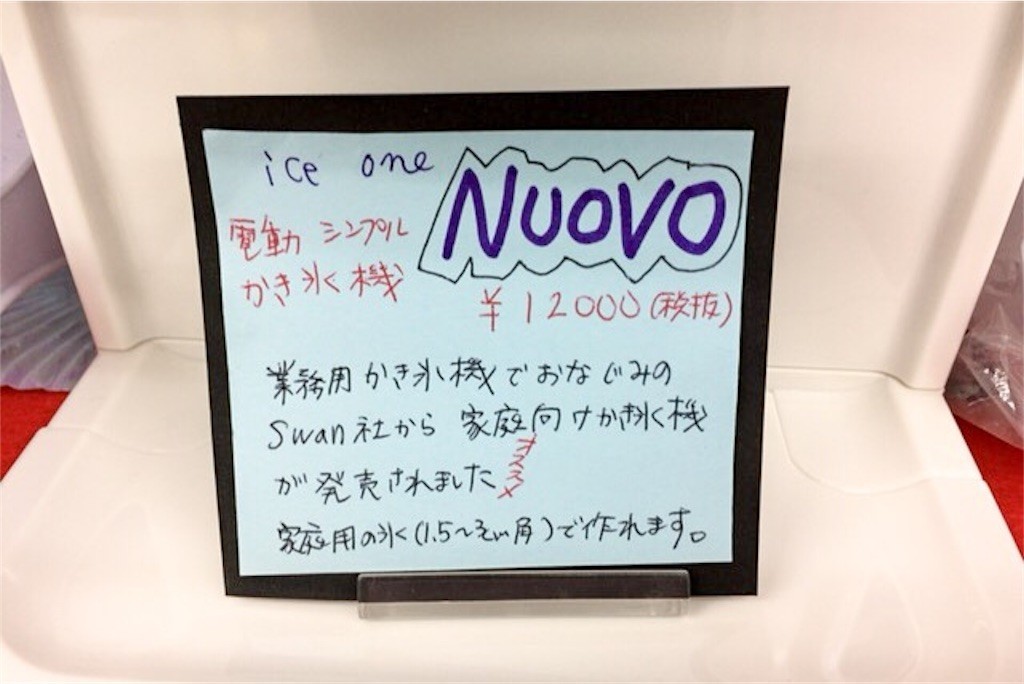 ice one
NUOVO
電動 シンプル
かき氷機
¥12000(税抜)
業務用かき氷機でおなじみの
Swan社から 家庭向けかき氷機
が発売されました
オススメ
家庭用の氷(1.5〜3cm角)で作れます。